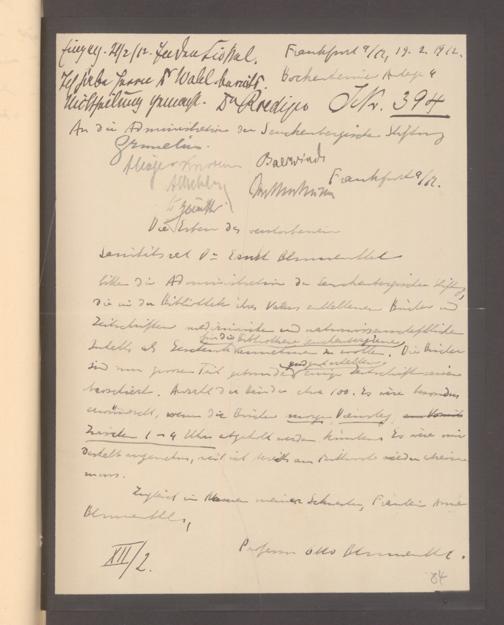 Eingeg. 21/2/12. In den Lissal.
Frankfurt a/M, 19. 2. 1912.
Ich habe Herrn Dr Wahl bereits
Bockenheimer Anlage 4
Mittheilung gemacht. Dr Roediger J.Nr. 394
An die Administration der Senckenbergischen Stiftung
Frankfurt a/M.
Die Erben des verstorbenen
Sanitätsrat Dr Ernst Blumenthal
bitten die Administration der Senckenbergischen Stiftung,
die in der Bibliothek ihres Vaters enthaltenen Bücher und
Zeitschriften medizinischen und naturwissenschaftlichen
für die Bibliotheca Senckenbergiana
Inhalts als Geschenk annehmen zu wollen. Die Bücher
und gut erhalten
sind zum grossen Teil gebunden, einige Zeitschriften
broschiert. Anzahl der Bände etwa 100. Es wäre besonders
erwünscht, wenn die Bücher morgen, Dienstag,
zwischen 1 - 4 Uhr abgeholt werden könnten. Es wäre mir
deshalb angenehm, weil ich Mittwoch wieder abreisen
muss.
Zugleich im Namen meiner Schwester, Fräulein Anna
Blumenthal,
Professor Otto Blumenthal.
XII/2.
84